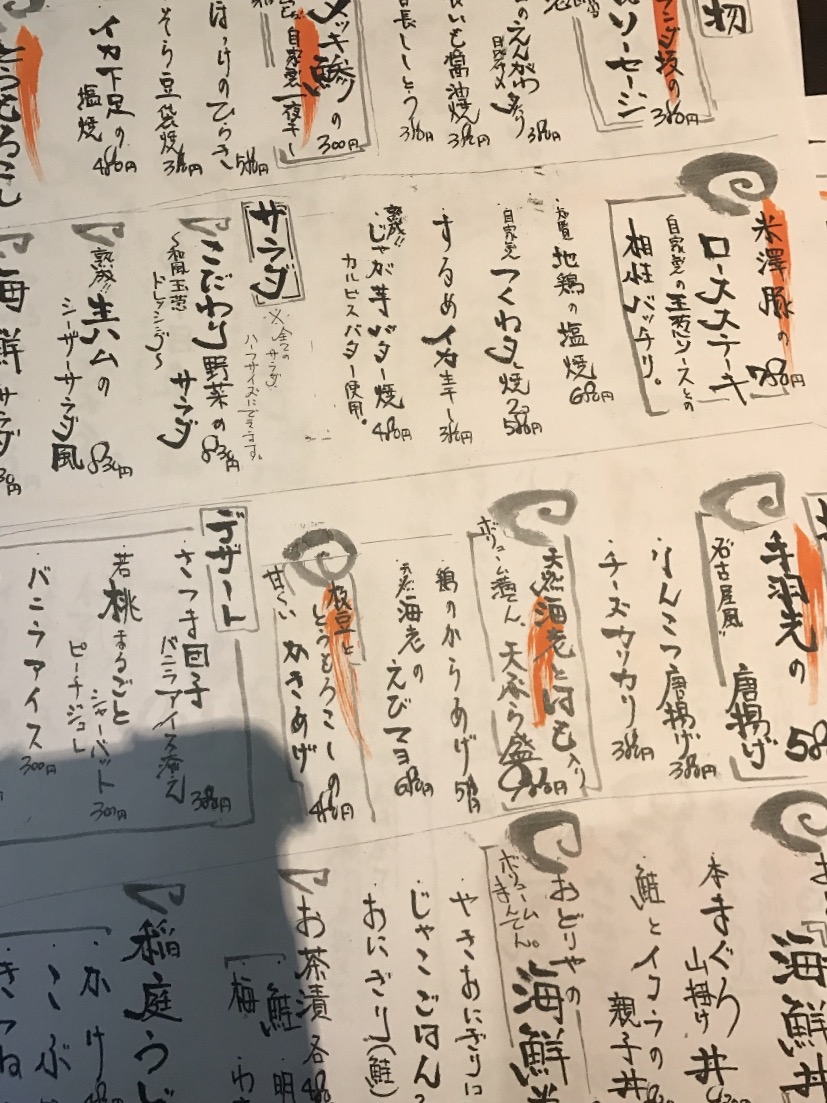 物
ソーセージ
380円
えんがわ炙り
380円
いも醤油焼
380円
長ししとう
380円
自家製一夜干し
300円
ほっけのひらき
580円
そら豆袋焼
380円
イカ下足の
塩焼
480円
とうもろこし
米澤豚の
ロースステーキ
780円
自家製の玉葱ソースとの
相性バッチリ。
地鶏の塩焼
680円
自家製
つくねタレ焼
580円
するめイカ生干し
380円
熟成!!
じゃが芋バター焼
カルピスバター使用。
480円
サラダ
※全ての
サラダ
ハーフサイズにできます。
こだわり野菜の
サラダ
〜和風玉葱
ドレッシング〜
830円
熟成!!
生ハムの
シーザーサラダ風
830円
海鮮サラダ
手羽先の
唐揚げ
名古屋風!!
なんこつ唐揚げ
380円
チーズカリカリ
380円
天然海老とはも入り
ボリューム満てん、天ぷら盛
980円
鶏のからあげ
海老の
えびマヨ
680円
枝豆と
とうもろこしの
甘〜い
かきあげ
480円
デザート
さつま団子
バニラアイス添え
380円
若桃まるごと
シャーベット
ピーチジュレ
300円
バニラアイス
300円
海鮮丼
本まぐろ
山掛け丼
鮭とイクラの
親子丼
おどりやの
海鮮
ボリューム
まんてん。
やきおにぎり
じゃこごはん
おにぎり(鮭)
お茶漬各
鮭
明
梅
わ
稲庭うど
かけ
こぶ
きつね